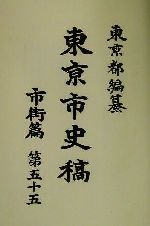 東京都編纂
東京市史稿
市街篇 第五十五